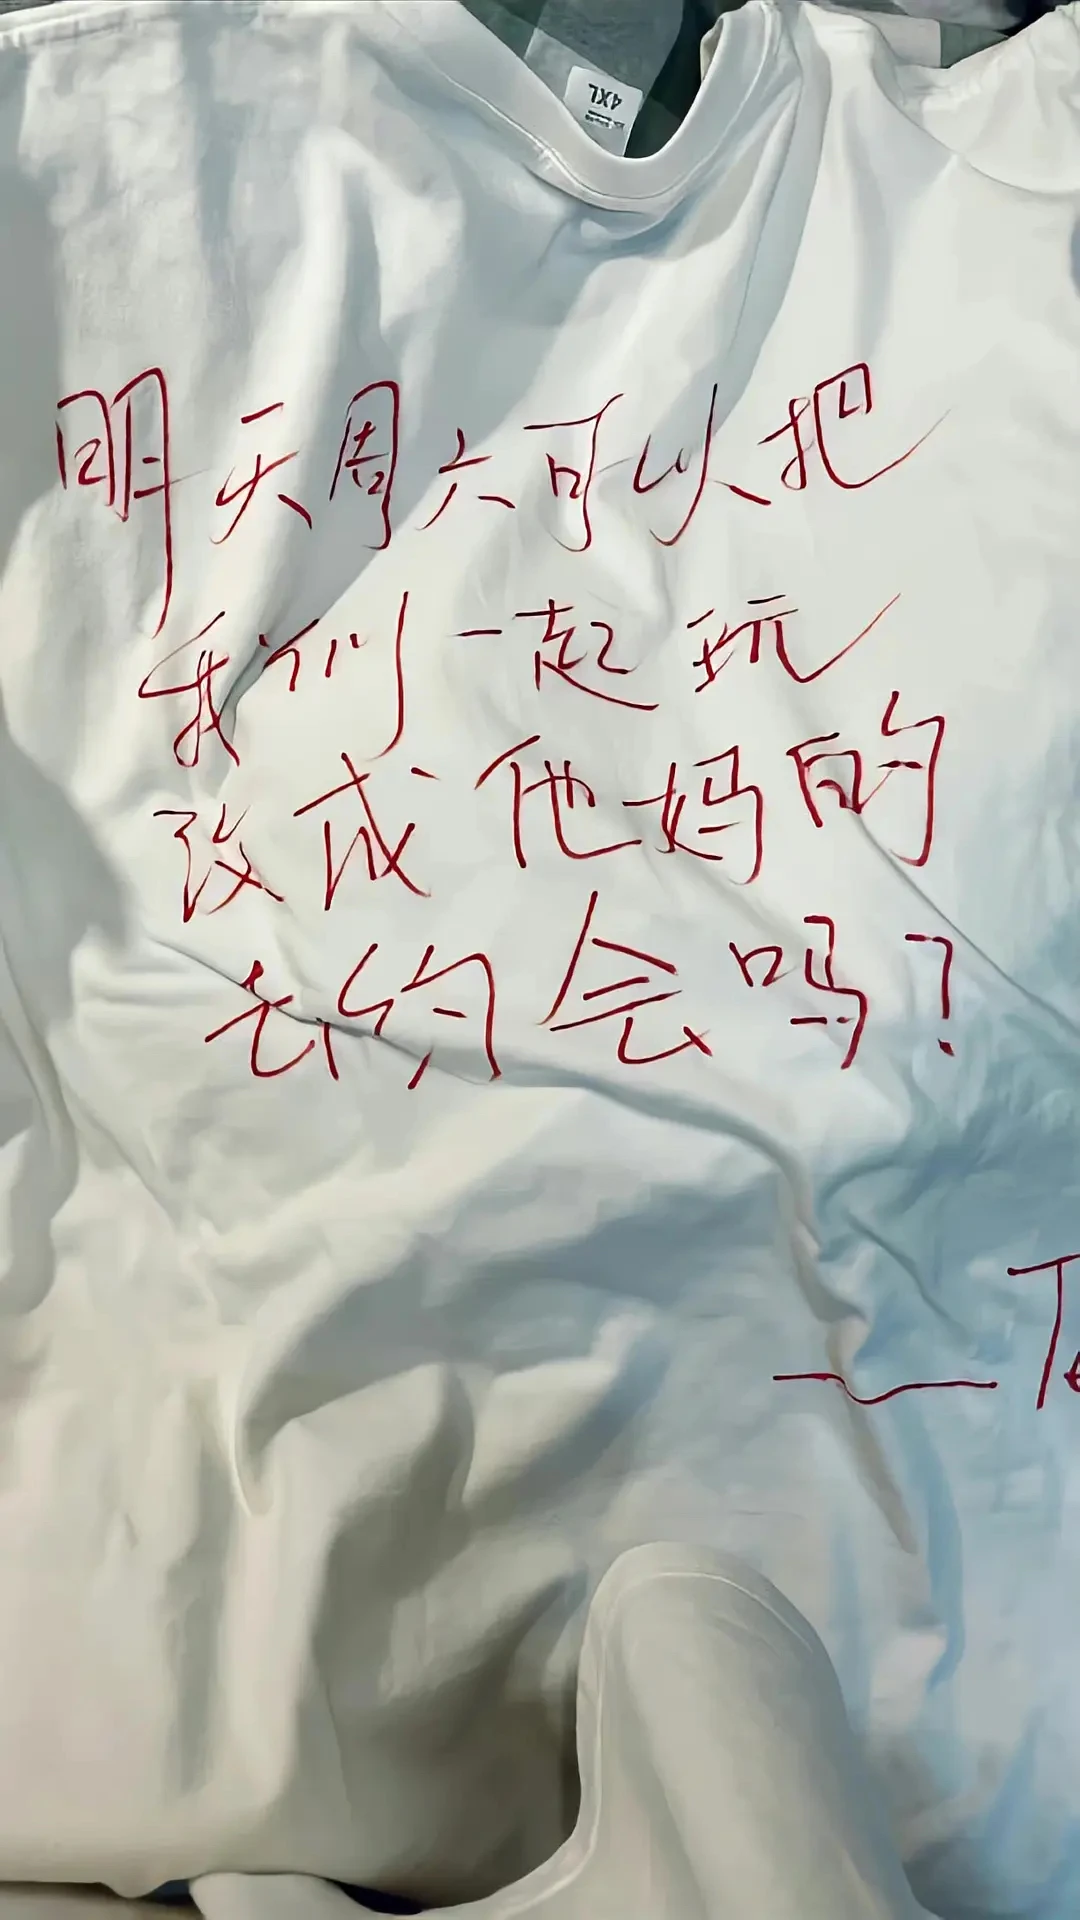 4XL
明天周六可以把
我们一起玩
改成他妈的
去约会吗?